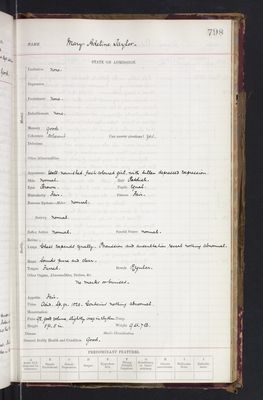 798
NAME Mary Adeline Taylor.
STATE ON ADMISSION.
Excitation None.
Depression
Excitement None.
Enfeeblement None.
Memory Good.
Coherence Coherent Can answer questions? Yes.
Delusions
Other Abnormalities
Appearance Well nourished fresh coloured girl, with sullen depressed expression.
Skin Normal. Hair Reddish.
Eyes Brown. Pupils Equal.
Muscularity Fair. Fatness Fair.
Nervous System—Motor Normal.
Sensory Normal.
Reflex Action Normal. Special Senses Normal.
Retinæ
Lungs Chest expands equally. Percussion and auscultation reveal nothing abnormal.
Heart Sounds pure and clear.
Tongue Furred. Bowels Regular.
Other Organs, Abnormalities, Bruises, &c.
No marks or bruises.
Appetite Fair.
Urine Acid. Sp. gr. 1020. Contains nothing abnormal.
Menstruation
Temp.
Height 5 ft. 5 in. Weight
Disease
General Bodily Health and Condition Good.
PREDOMINANT FEATURE.